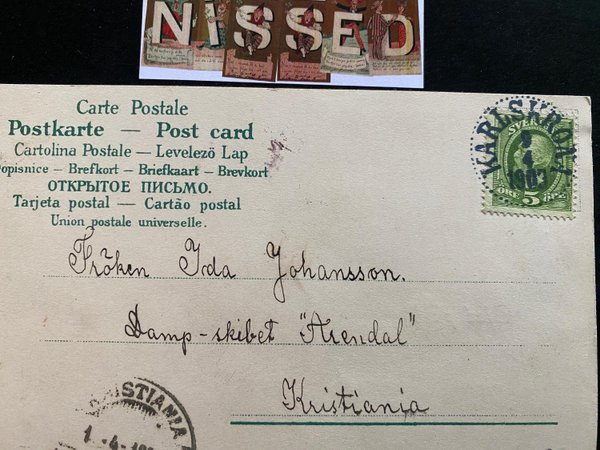 NISSED
Carte Postale
Postkarte — Post card
Cartolina Postale — Levelező Lap
Dopisnice — Brefkort — Briefkaart — Brevkort
ОТКРЫТОЕ ПИСЬМО.
Tarjeta postal — Cartão postal
Union postale universelle.
KARLSKRONA
4
1903
SVERIGE
5
Fröken Ida Johansson.
Damp-skibet "Arendal"
Kristiania
ISTIANIA
1 -4-